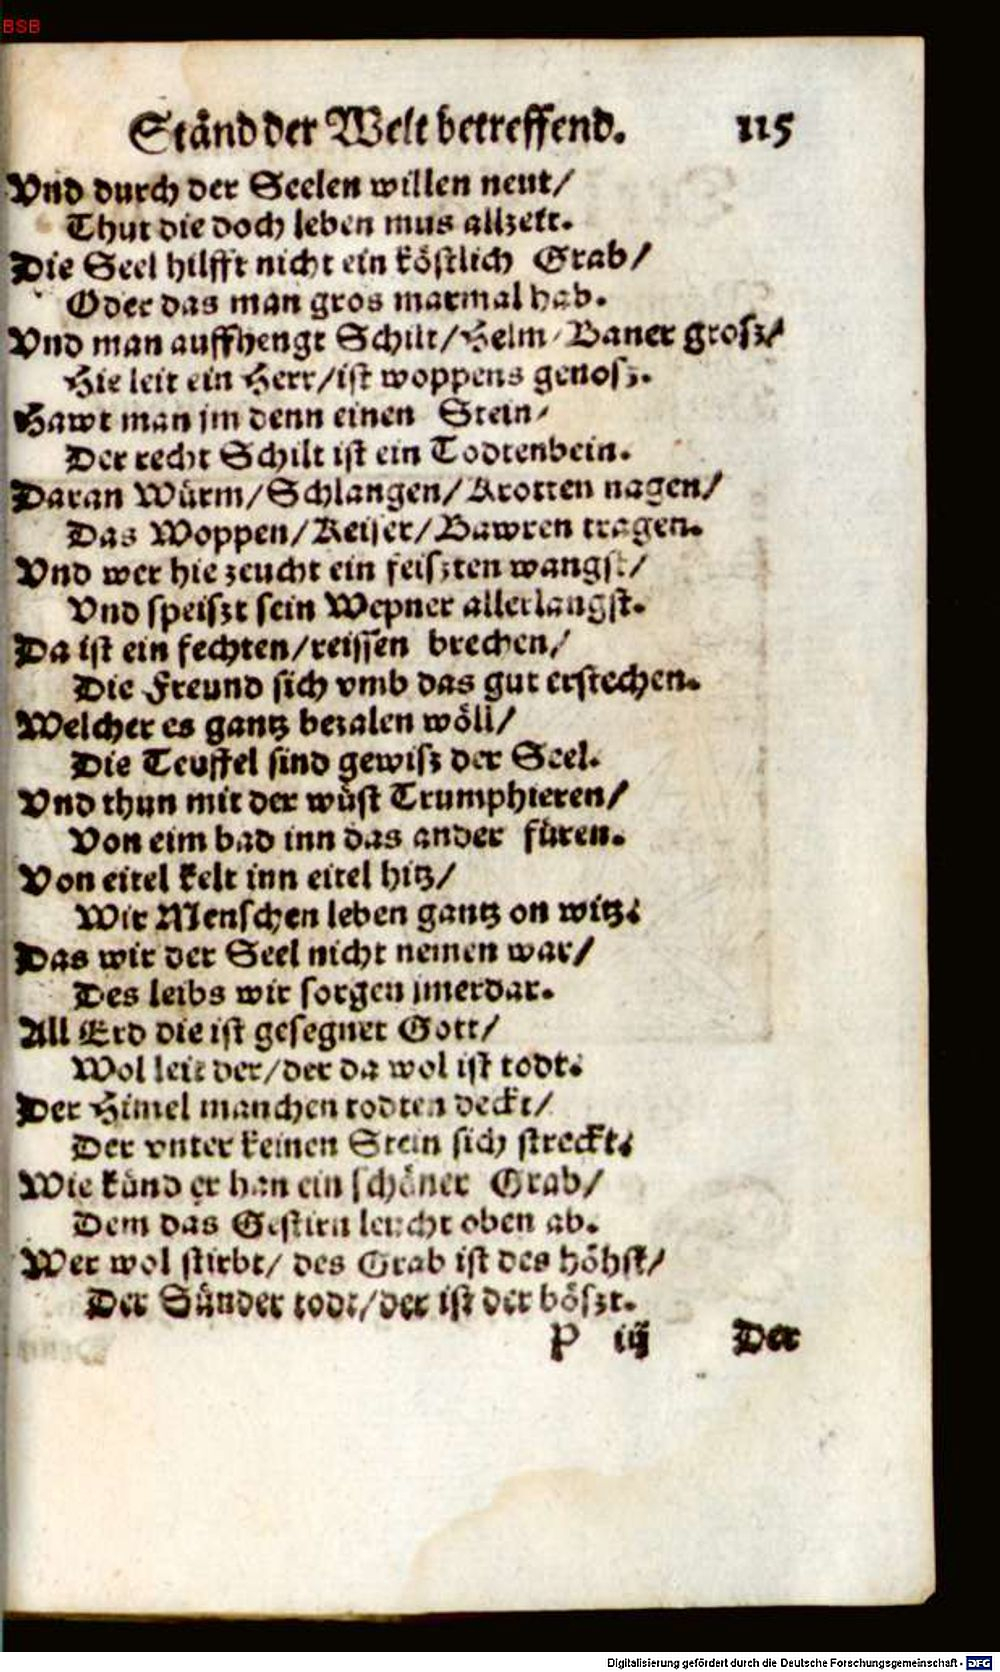 BSB
Ständ der Welt betreffend. 115
Vnd durch der Seelen willen neut/
Thut die doch leben mus allzeit.
Die Seel hilfft nicht ein köstlich Grab/
Oder das man gros marmal hab.
Vnd man auffhengt Schilt/Helm/Baner grosz/
Hie leit ein Herr/ist woppens genosz.
Hawt man jm denn einen Stein/
Der recht Schilt ist ein Todtenbein.
Daran Würm/Schlangen/Krotten nagen/
Das Woppen/Keiser/Bawren tragen.
Vnd wer hie zeucht ein feiszten wangst/
Vnd speiszt sein Wepner allerlangst.
Da ist ein fechten/reissen brechen/
Die Freund sich vmb das gut erstechen.
Welcher es gantz bezalen wöll/
Die Teuffel sind gewisz der Seel.
Vnd thun mit der wüst Trumphieren/
Von eim bad inn das ander füren.
Von eitel kelt inn eitel hitz/
Wir Menschen leben gantz on witz.
Das wir der Seel nicht nemen war/
Des leibs wir sorgen jmerdar.
All Erd die ist gesegnet Gott/
Wol leit der/der da wol ist todt.
Der Himel manchen todten deckt/
Der vnter keinen Stein sich streckt.
Wie künd er han ein schöner Grab/
Dem das Gestirn leucht oben ab.
Wer wol stirbt/ des Grab ist des höhst/
Der Sünder todt/der ist der böszt.
P iij Der
Digitalisierung gefördert durch die Deutsche Forschungsgemeinschaft - DFG